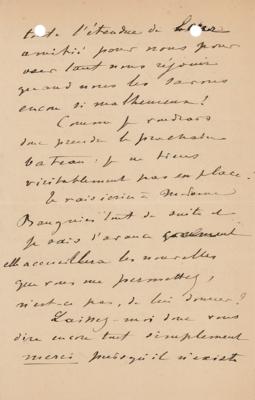 toute l'étendue de leur
amitié pour nous pour
oser tant nous réjouir
quand nous les savons
encore si malheureux !
Comme je voudrais
donc prendre le prochain
bateau : je ne tiens
véritablement pas en place !
Je vais écrire à Madame
tout de suite et
je sais d'avance
elle accueillera les nouvelles
que vous me permettez,
n'est-ce pas, de lui donner ?
Laissez-moi donc vous
dire encore tout simplement
merci puisqu'il n'existe